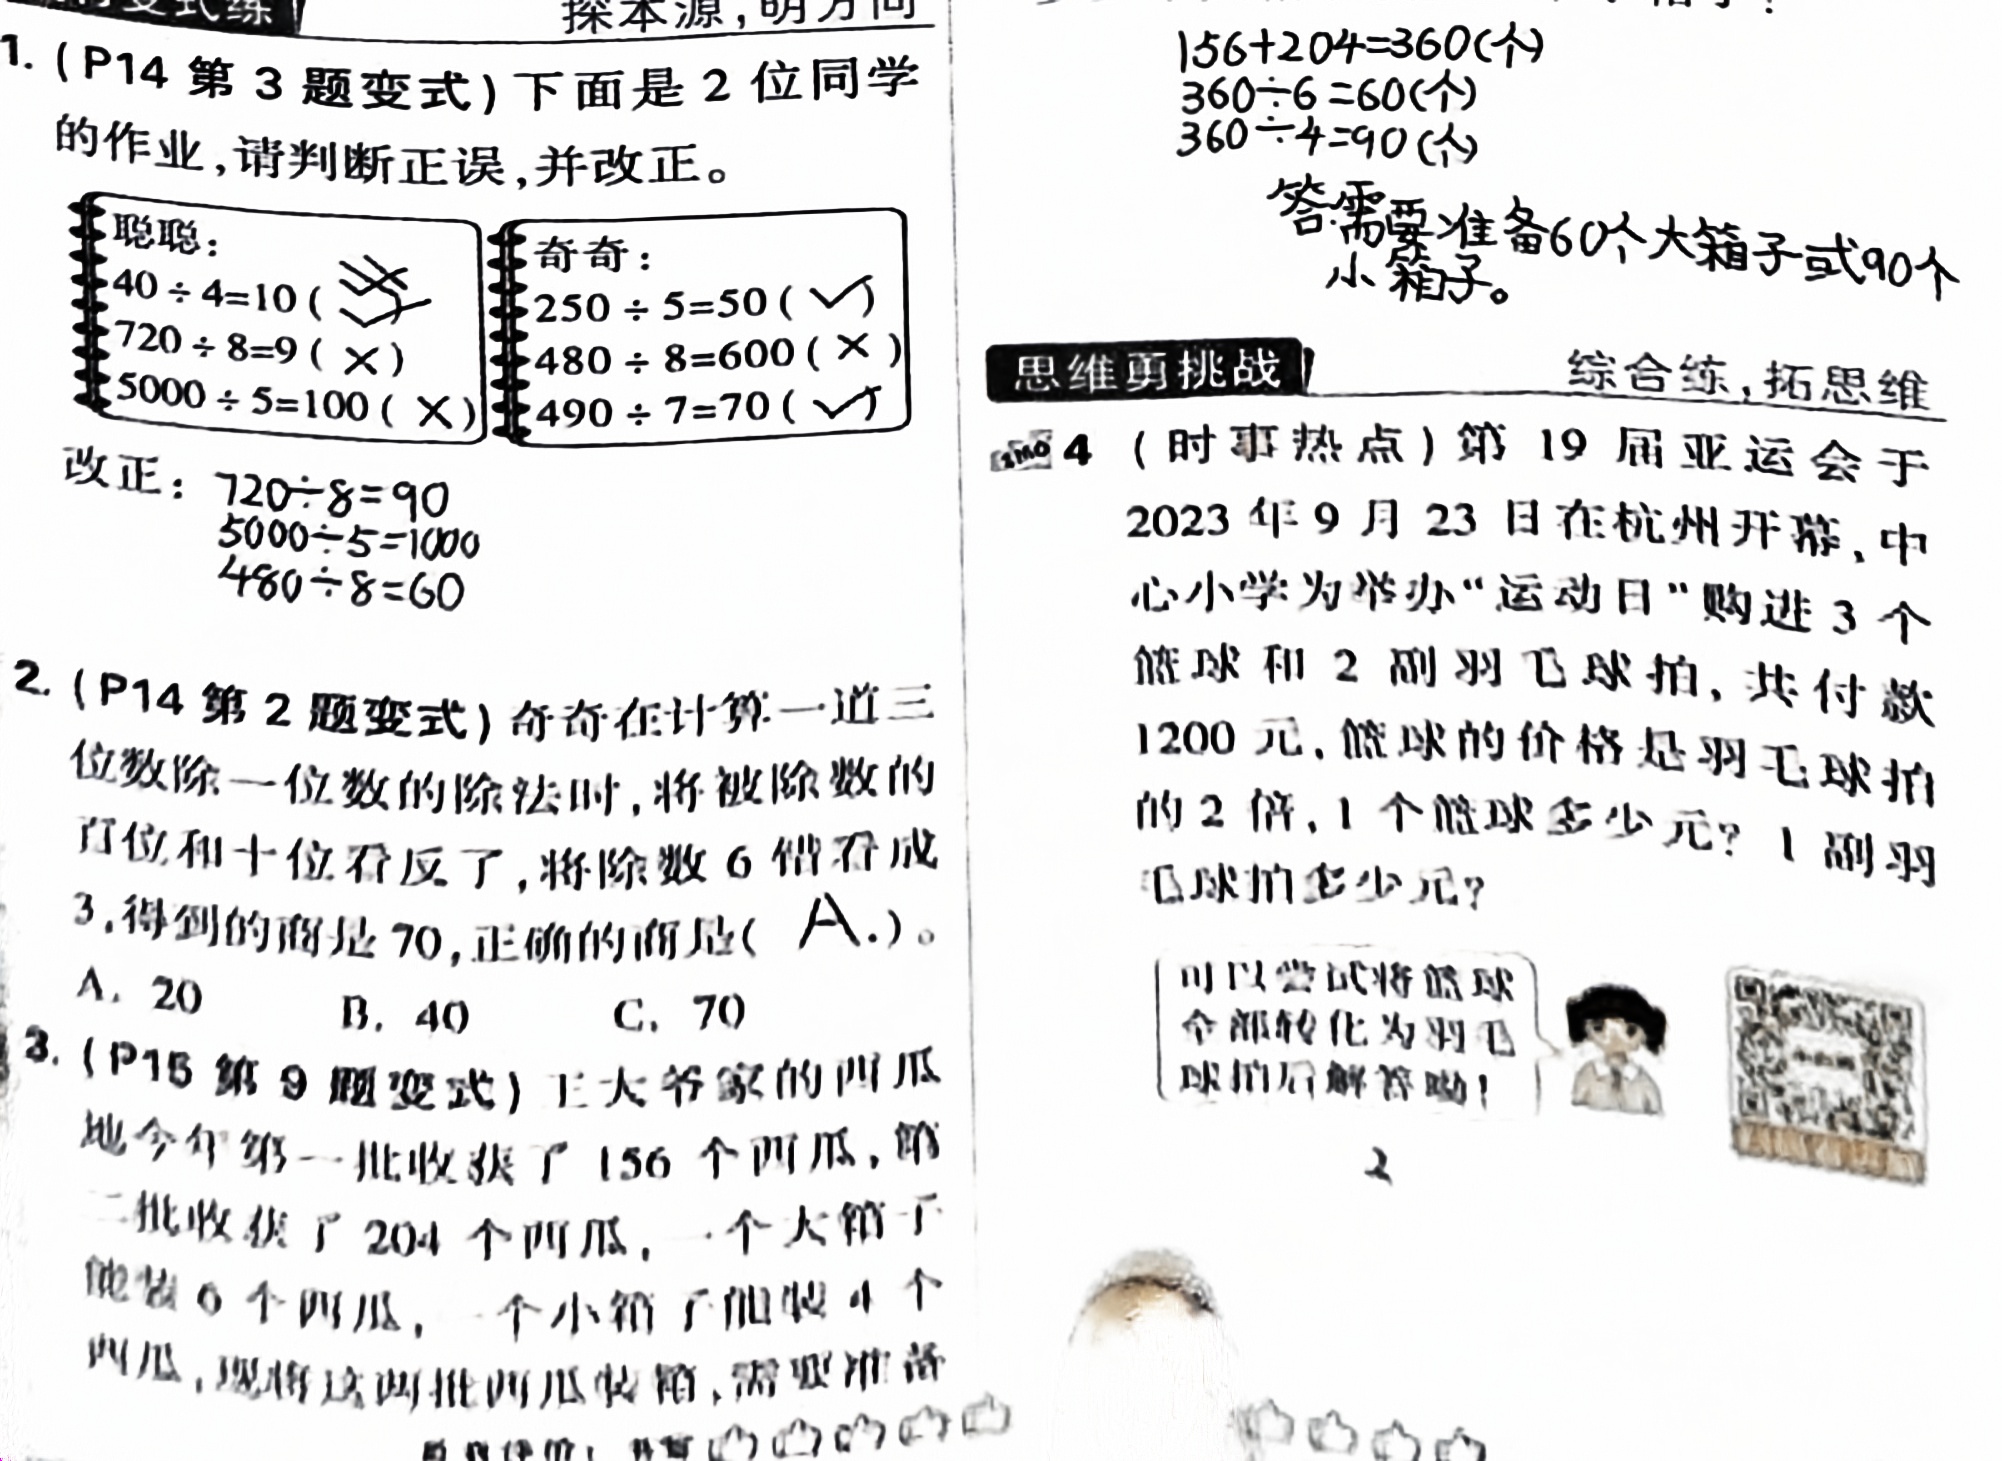 变式练
探本源,明方向
1. (P14 第 3 题变式)下面是 2 位同学
的作业,请判断正误,并改正。
聪聪:
40÷4=10( ✓ )
720÷8=9( × )
5000÷5=100( × )
奇奇:
250÷5=50( ✓ )
480÷8=600( × )
490÷7=70( ✓ )
改正:720÷8=90
5000÷5=1000
480÷8=60
2. (P14 第 2 题变式)奇奇在计算一道三
位数除一位数的除法时,将被除数的
百位和十位看反了,将除数 6 错看成
3,得到的商是 70,正确的商是( A. )。
A. 20 B. 40 C. 70
3. (P15 第 9 题变式)王大爷家的西瓜
地今年第一批收获了 156 个西瓜,第
二批收获了 204 个西瓜,一个大箱子
能装 6 个西瓜,一个小箱子能装 4 个
西瓜,现将这两批西瓜装箱,需要准备
156+204=360(个)
360÷6=60(个)
360÷4=90(个)
答:需要准备60个大箱子或90个
小箱子。
思维勇挑战
综合练,拓思维
4 (时事热点)第 19 届亚运会于
2023 年 9 月 23 日在杭州开幕,中
心小学为举办“运动日”购进 3 个
篮球和 2 副羽毛球拍,共付款
1200 元,篮球的价格是羽毛球拍
的 2 倍,1 个篮球多少元?1 副羽
毛球拍多少元?
可以尝试将篮球
全部转化为羽毛
球拍后解答呦!
2